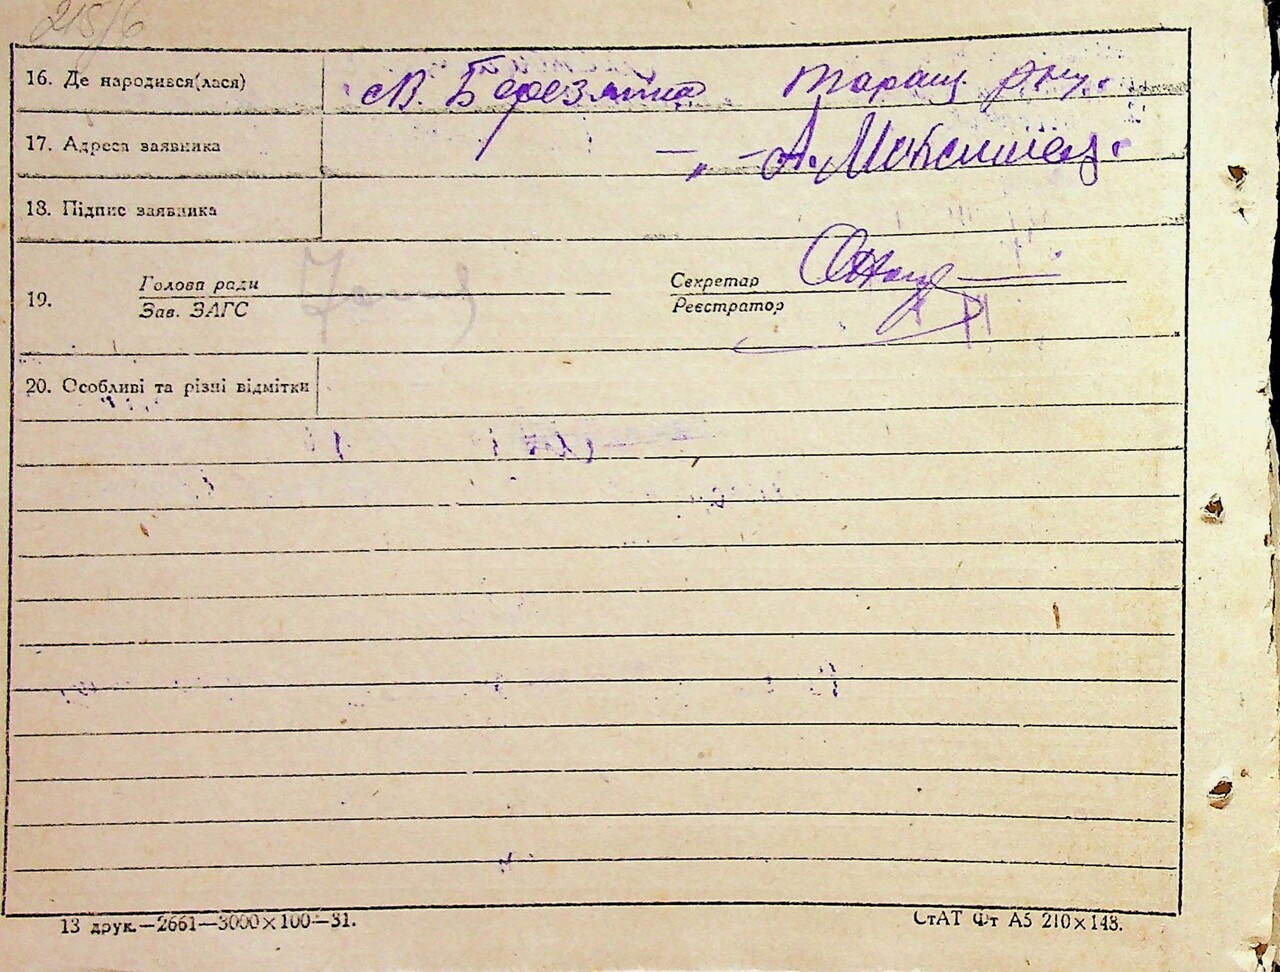 215/6
16. Де народився(лася) с. Березянка Таращ. р-ну.
17. Адреса заявника —„—
18. Підпис заявника
Голова ради Секретар
19.
Зав. ЗАГС Реєстратор
20. Особливі та різні відмітки
13 друк.—2661—3000×100—31. СтАТ Фт А5 210×148.